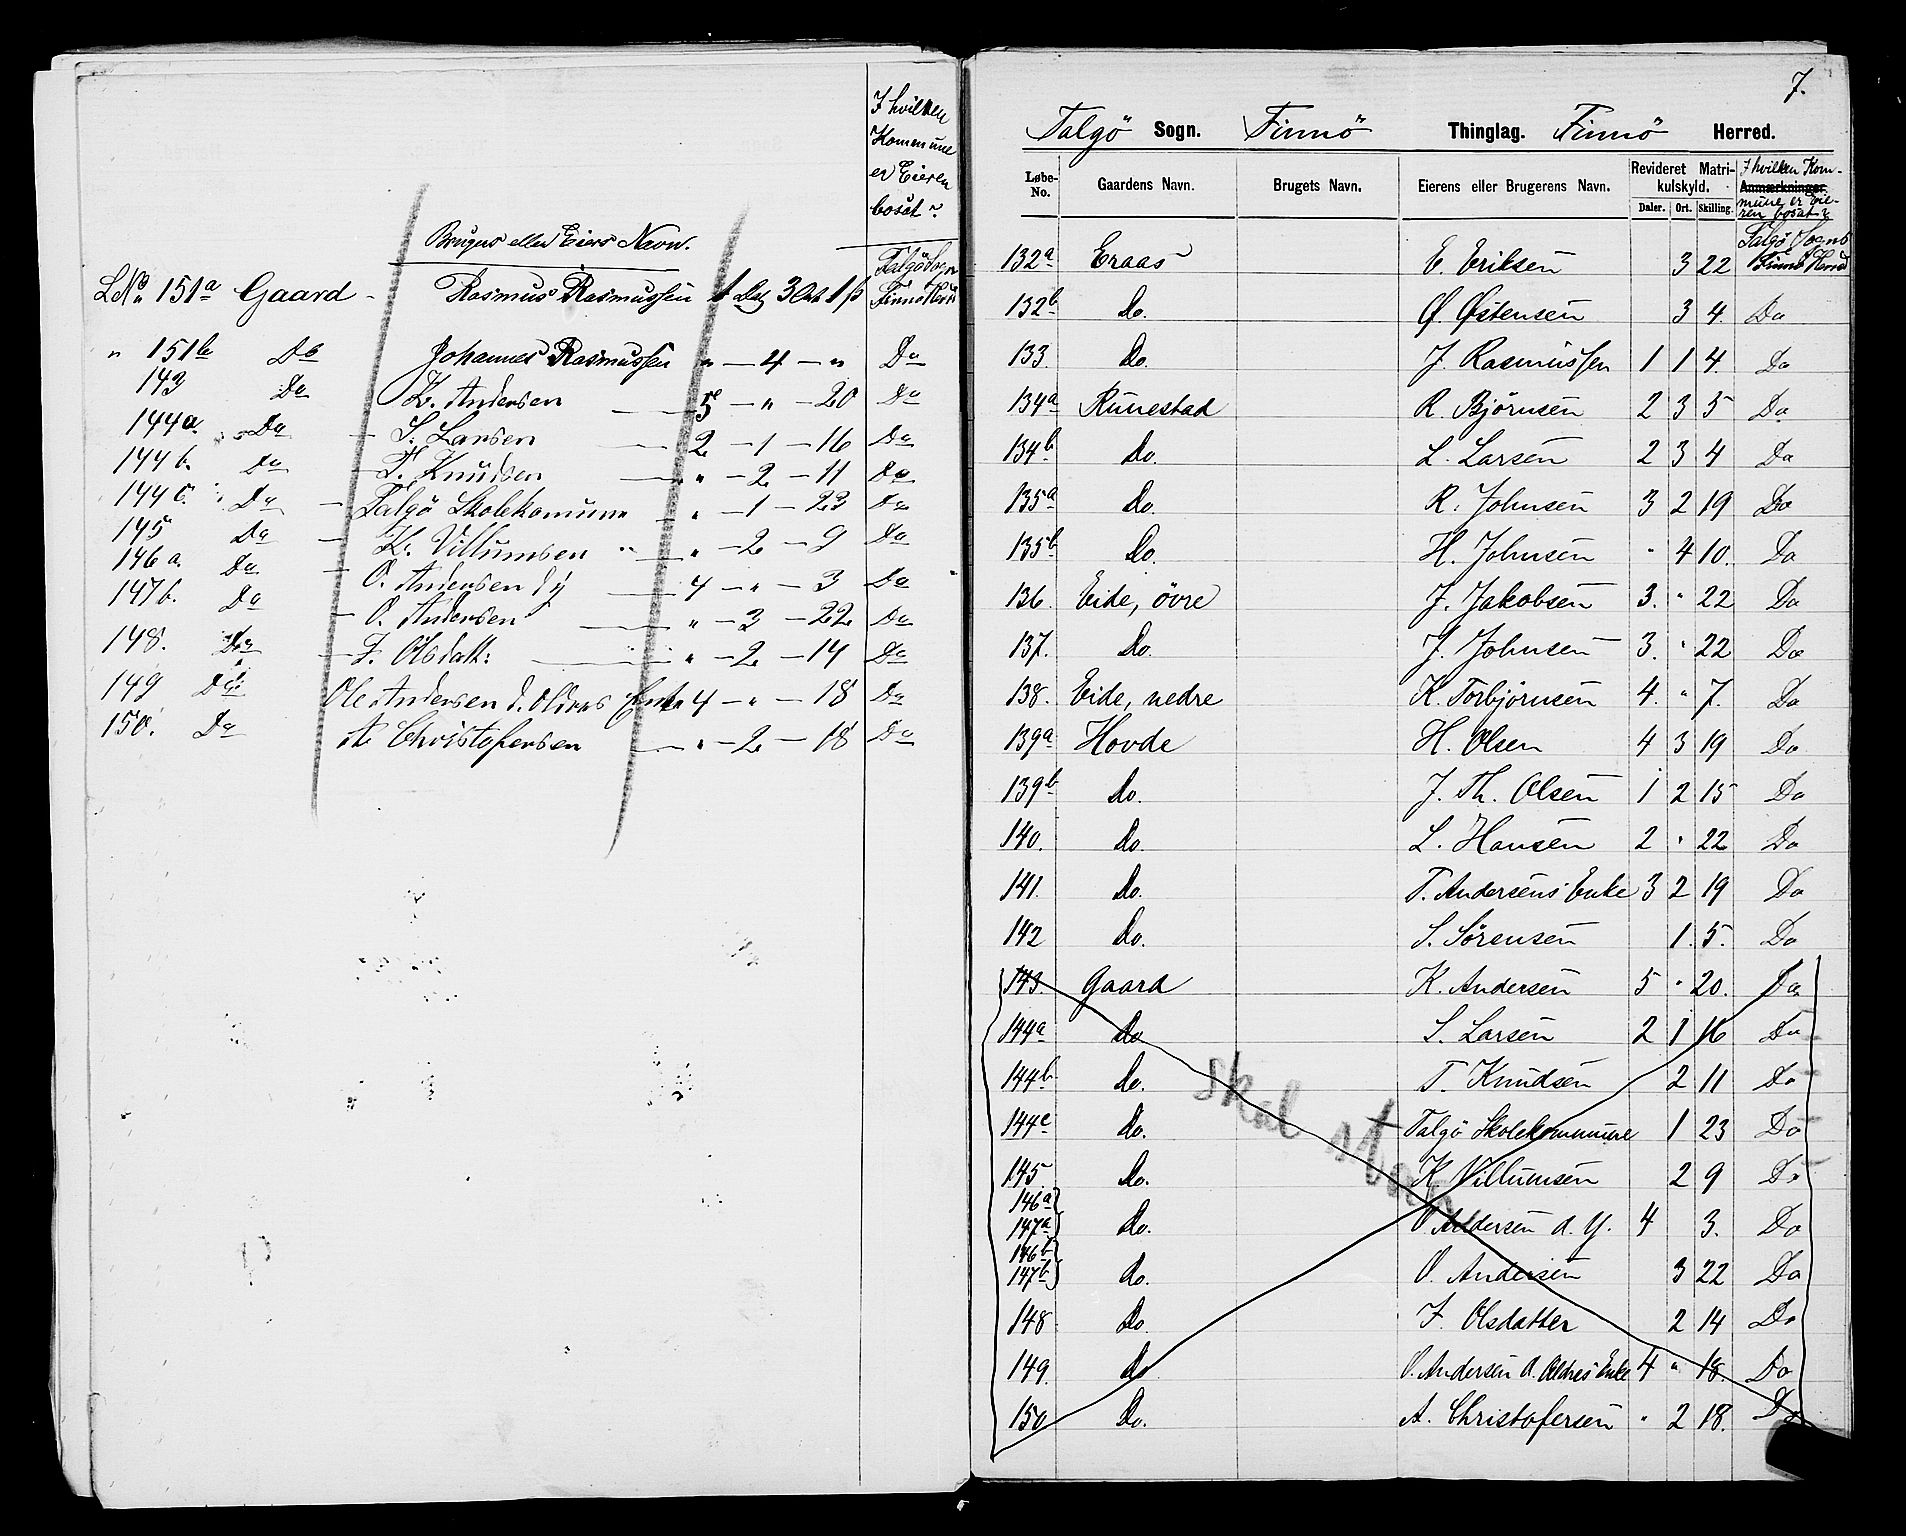 I hvilken
Kommune
er Eieren
bosat?
Brugers eller Eiers Navn.
LNo 151a Gaard - Rasmus Rasmussen 1 Dal 3 Ort 1 ß Talgö Sogn Finnö Herred
" 151b Do Johannes Rasmussen " - 4 - " Do
143 Do K. Andersen 5 - " - 20 Do
144a. Do - S. Larsen 2 - 1 - 16 Do
144b. Do - T. Knudsen " - 2 - 11 Do
144c. Do - Talgö Skolekomune " - 1 - 23 Do
145 Do - K. Villumsen " - 2 - 9 Do
146a. Do - O. Andersen d y 4 - " - 3 Do
147b. Do - O. Andersen " - 3 - 22 Do
148. Do - F. Olsdatt: " - 2 - 14 Do
149 Do Ole Andersen d. Oldres Enke 4 - " - 18 Do
150. Do A Christofersen " - 2 - 18 Do
7.
Talgö Sogn. Finnö Thinglag. Finnö Herred.
Løbe-No. Gaardens Navn. Brugets Navn. Eierens eller Brugerens Navn. Revideret Matrikulskyld. Anmærkninger
Daler. Ort. Skilling.
I hvilken Kommune er Eieren bosat?
132a Eraas E. Eriksen 3 22 Talgö Sogns Finnö Herred
132b Do. Ø. Østensen 3 4 Do
133. Do. J. Rasmussen 1 1 4 Do
134a Runestad R. Björnsen 2 3 5 Do
134b Do. L. Larsen 2 3 4 Do
135a Do. R. Johnsen 3 2 19 Do
135b Do. H. Johnsen " 4 10. Do
136. Eide, övre J. Jakobsen 3. " 22 Do
137. Do. J. Johnsen 3. " 22 Do
138. Eide, nedre K. Torbjörnsen 4. " 7. Do
139a Hovde H. Olsen 4 3 19 Do
139b Do. J. Th. Olsen 1 2 15 Do
140. Do. L. Hansen 2 " 22 Do
141. Do. T. Andersens Enke 3 2 19 Do
142 Do. S. Sörensen 1. 5. Do
143. Gaard K. Andersen 5 " 20. Do
144a Do S. Larsen 2 1 16 Do
144b Do. T. Knudsen 2 11 Do
144c Do. Talgö Skolekommune 1 23 Do
145. Do. K Villumsen 2 9 Do
146a
147a Do. O Andersen d. Y. 4 3. Do
146b
147b Do. O. Andersen 3 22 Do
148 Do. F. Olsdatter 2 14 Do
149. Do O. Andersen d. Oldres Enke 4 " 18. Do
150 Do. A. Christofersen " 2 18. Do
skal staa